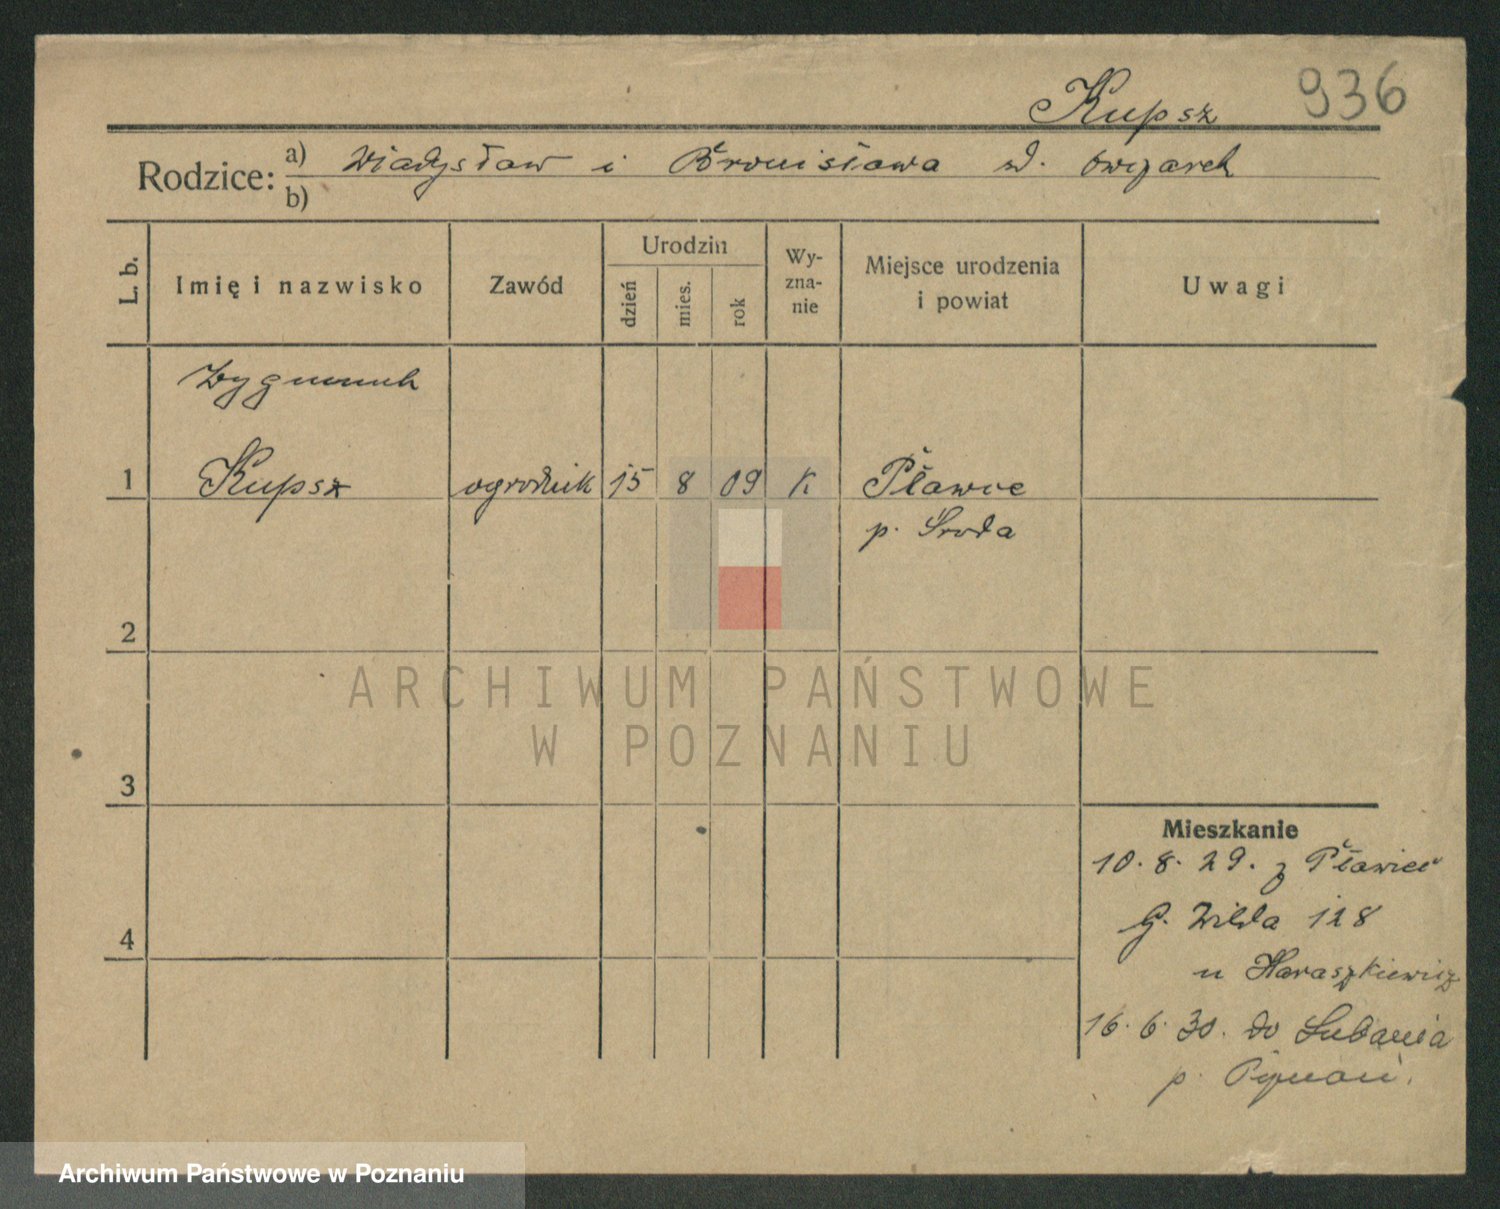 Kupsz 936
Rodzice: a) Władysław i Bronisława d. Owczarek
b)
L. b. Imię i nazwisko Zawód Urodzin dzień mies. rok Wyznanie Miejsce urodzenia i powiat Uwagi
Zygmunt
1 Kupsz ogrodnik 15 8 09 K Pławce
p. Środa
2
3
4
Mieszkanie
10. 8. 29. z Pławiec
G. Wilda 128
u Haraszkiewicz
16. 6. 30. do Lubania
p. Poznań.
ARCHIWUM PAŃSTWOWE
W POZNANIU
Archiwum Państwowe w Poznaniu